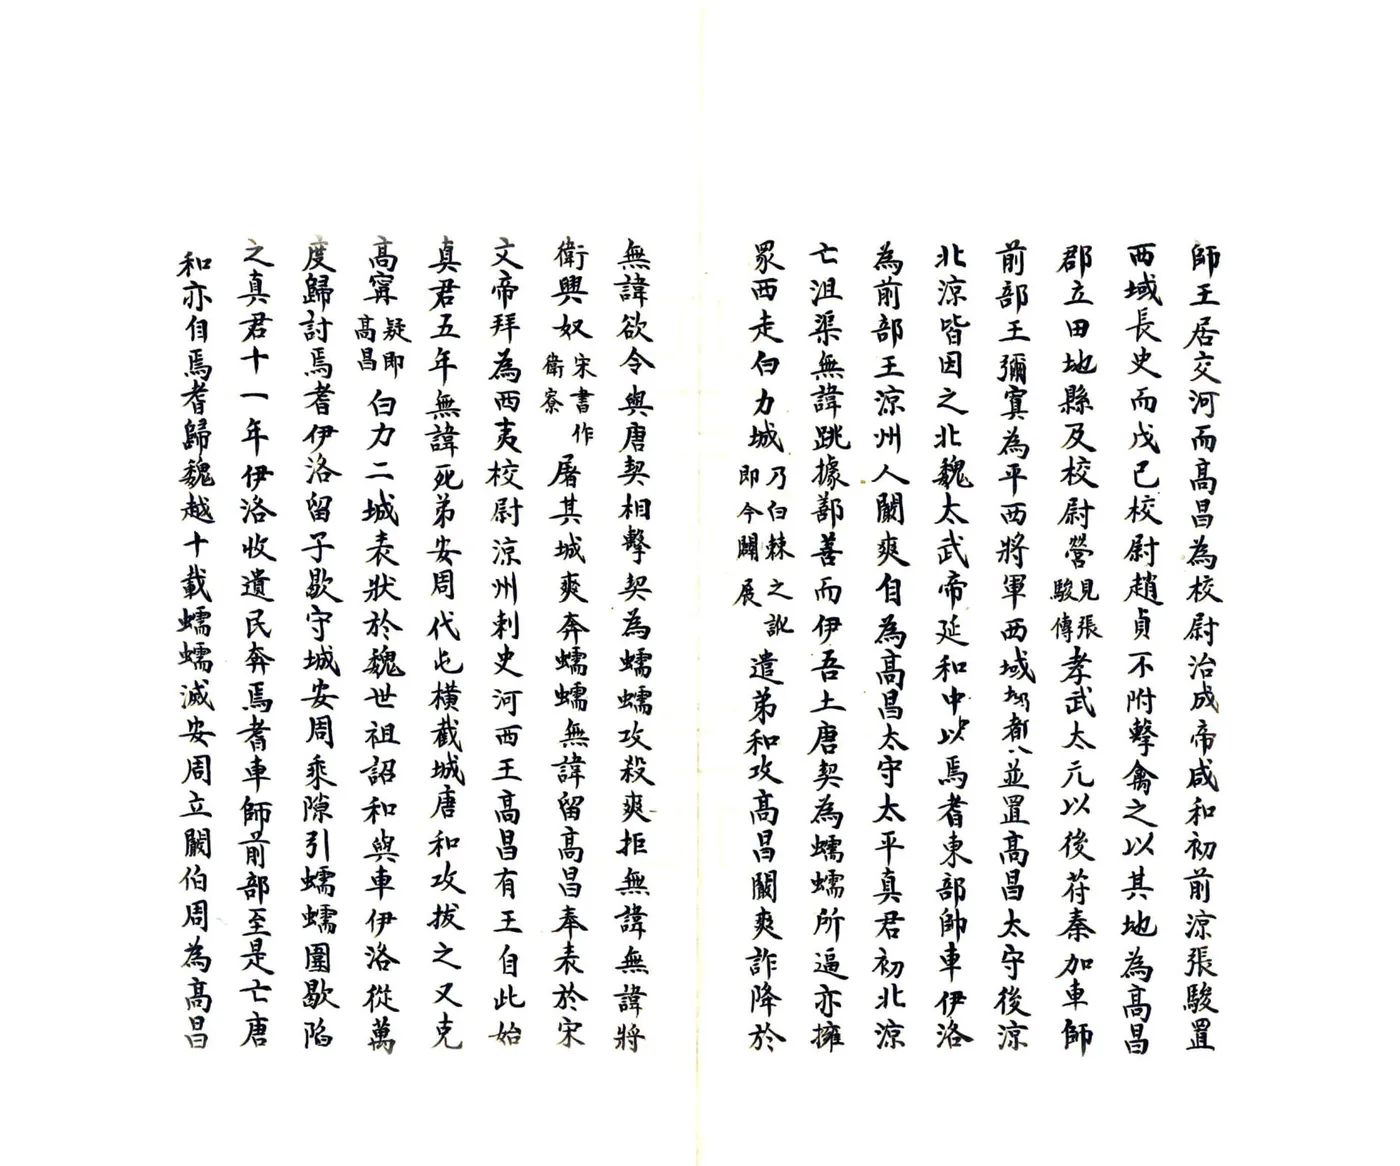 師王居交河而高昌為校尉治成帝咸和初前涼張駿置
西域長史而戊己校尉趙貞不附擊禽之以其地為高昌
郡立田地縣及校尉營見張駿傳孝武太元以後苻秦加車師
前部王彌寘為平西將軍西域都並置高昌太守後涼
北涼皆因之北魏太武帝延和中以焉耆東部帥車伊洛
為前部王涼州人闞爽自為高昌太守太平真君初北涼
亡沮渠無諱跳據鄯善而伊吾土唐契為蠕蠕所逼亦擁
眾西走白力城乃白棘之訛即今闢展遣弟和攻高昌闞爽詐降於
無諱欲令與唐契相擊契為蠕蠕攻殺爽拒無諱無諱將
衛興奴宋書作衛寮屠其城爽奔蠕蠕無諱留高昌奉表於宋
文帝拜為西夷校尉涼州刺史河西王高昌有王自此始
真君五年無諱死弟安周代屯橫截城唐和攻拔之又克
高寗疑即高昌白力二城表狀於魏世祖詔和與車伊洛從萬
度歸討焉耆伊洛留子歇守城安周乘隙引蠕蠕圍歇陷
之真君十一年伊洛收遺民奔焉耆車師前部至是亡唐
和亦自焉耆歸魏越十載蠕蠕滅安周立闞伯周為高昌